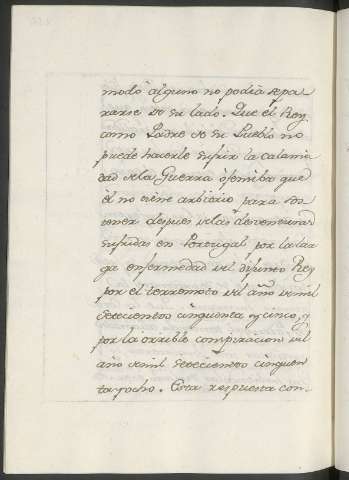 modo alguno no podia sepa
rarse de su lado. Que el Rey
como Padre de su Pueblo no
puede hacerle sufrir la calami
dad de la Guerra ofensiba que
él no tiene arbitrio para
tener despues de las desventuras
sufridas en Portugal por la lar
ga enfermedad del difunto Rey
por el terremoto del año de mil
setecientos cinquenta y cinco, y
por la orrible conspiracion del
año de mil setecientos cinquen
ta y ocho. Esta respuesta con-